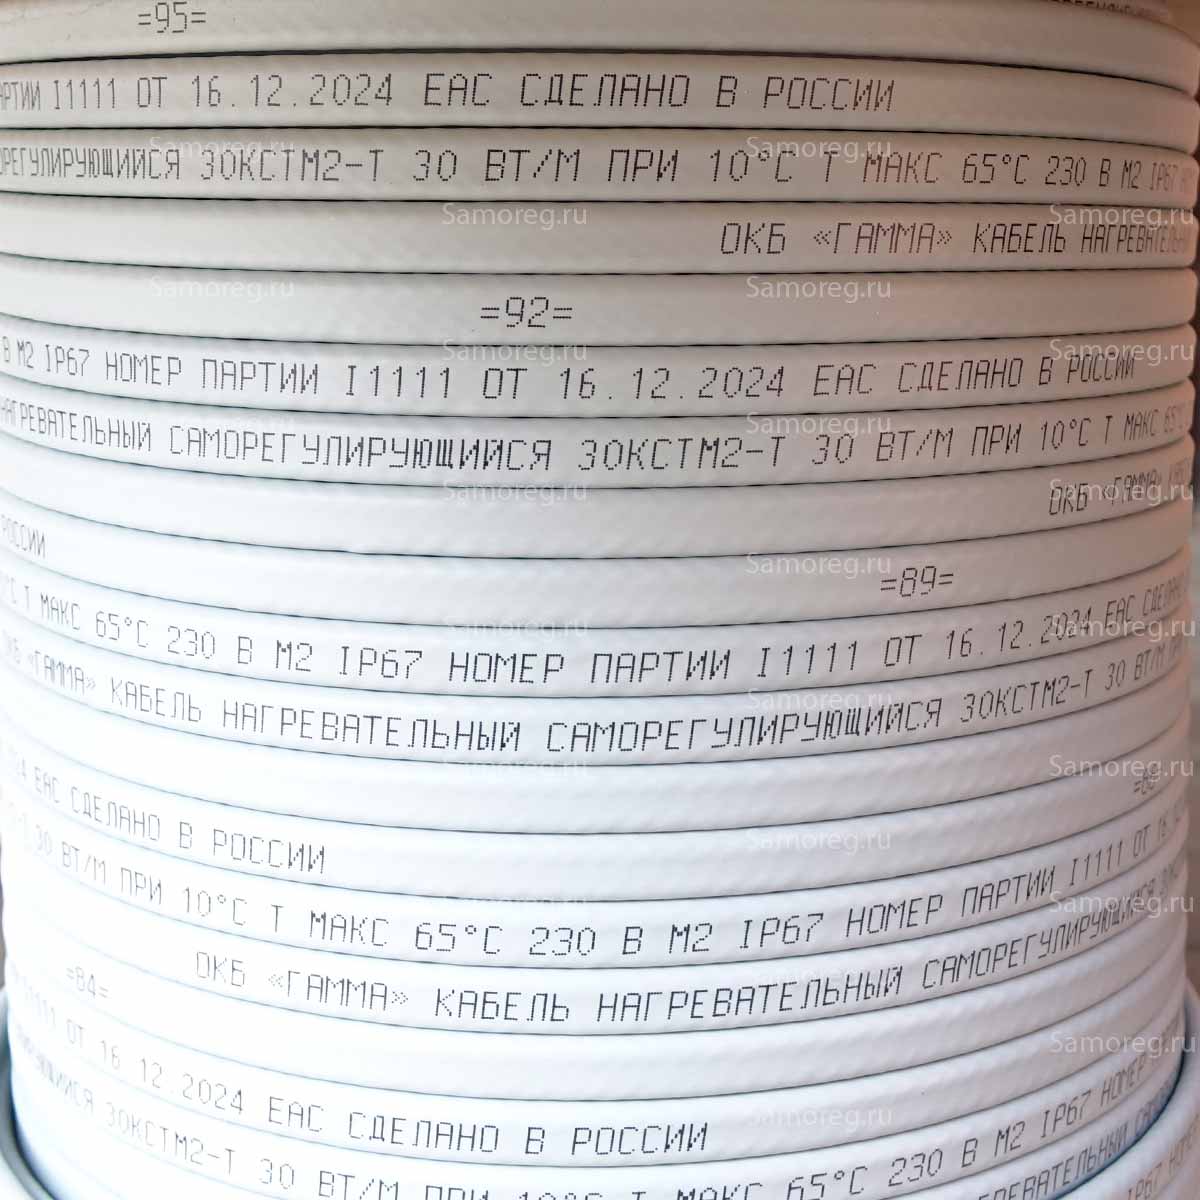 =95=
ПАРТИИ I1111 ОТ 16.12.2024 ЕАС СДЕЛАНО В РОССИИ
30КСТМ2-Т 30 ВТ/М ПРИ 10°С Т МАКС 65°С 230 В М2 IP67
ОКБ «ГАММА» КАБЕЛЬ НАГРЕВАТЕЛЬНЫЙ
=92=
В М2 IP67 НОМЕР ПАРТИИ I1111 ОТ 16.12.2024 ЕАС СДЕЛАНО В РОССИИ
НАГРЕВАТЕЛЬНЫЙ САМОРЕГУЛИРУЮЩИЙСЯ 30КСТМ2-Т 30 ВТ/М ПРИ 10°С Т МАКС 65°С
ОКБ «ГАММА»
РОССИИ
=89=
Т МАКС 65°С 230 В М2 IP67 НОМЕР ПАРТИИ I1111 ОТ 16.12.2024 ЕАС СДЕЛАНО
ОКБ «ГАММА» КАБЕЛЬ НАГРЕВАТЕЛЬНЫЙ САМОРЕГУЛИРУЮЩИЙСЯ 30КСТМ2-Т 30 ВТ/М
ЕАС СДЕЛАНО В РОССИИ
30 ВТ/М ПРИ 10°С Т МАКС 65°С 230 В М2 IP67 НОМЕР ПАРТИИ I1111 ОТ
ОКБ «ГАММА» КАБЕЛЬ НАГРЕВАТЕЛЬНЫЙ САМОРЕГУЛИРУЮЩИЙСЯ
=84=
I1111 ОТ 16.12.2024 ЕАС СДЕЛАНО В РОССИИ
30КСТМ2-Т 30 ВТ/М ПРИ 10°С Т МАКС 65°С 230 В М2 IP67 НОМЕР
Samoreg.ru